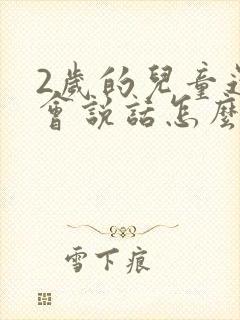 2歲的兒童
會說話怎麼
雪下痕